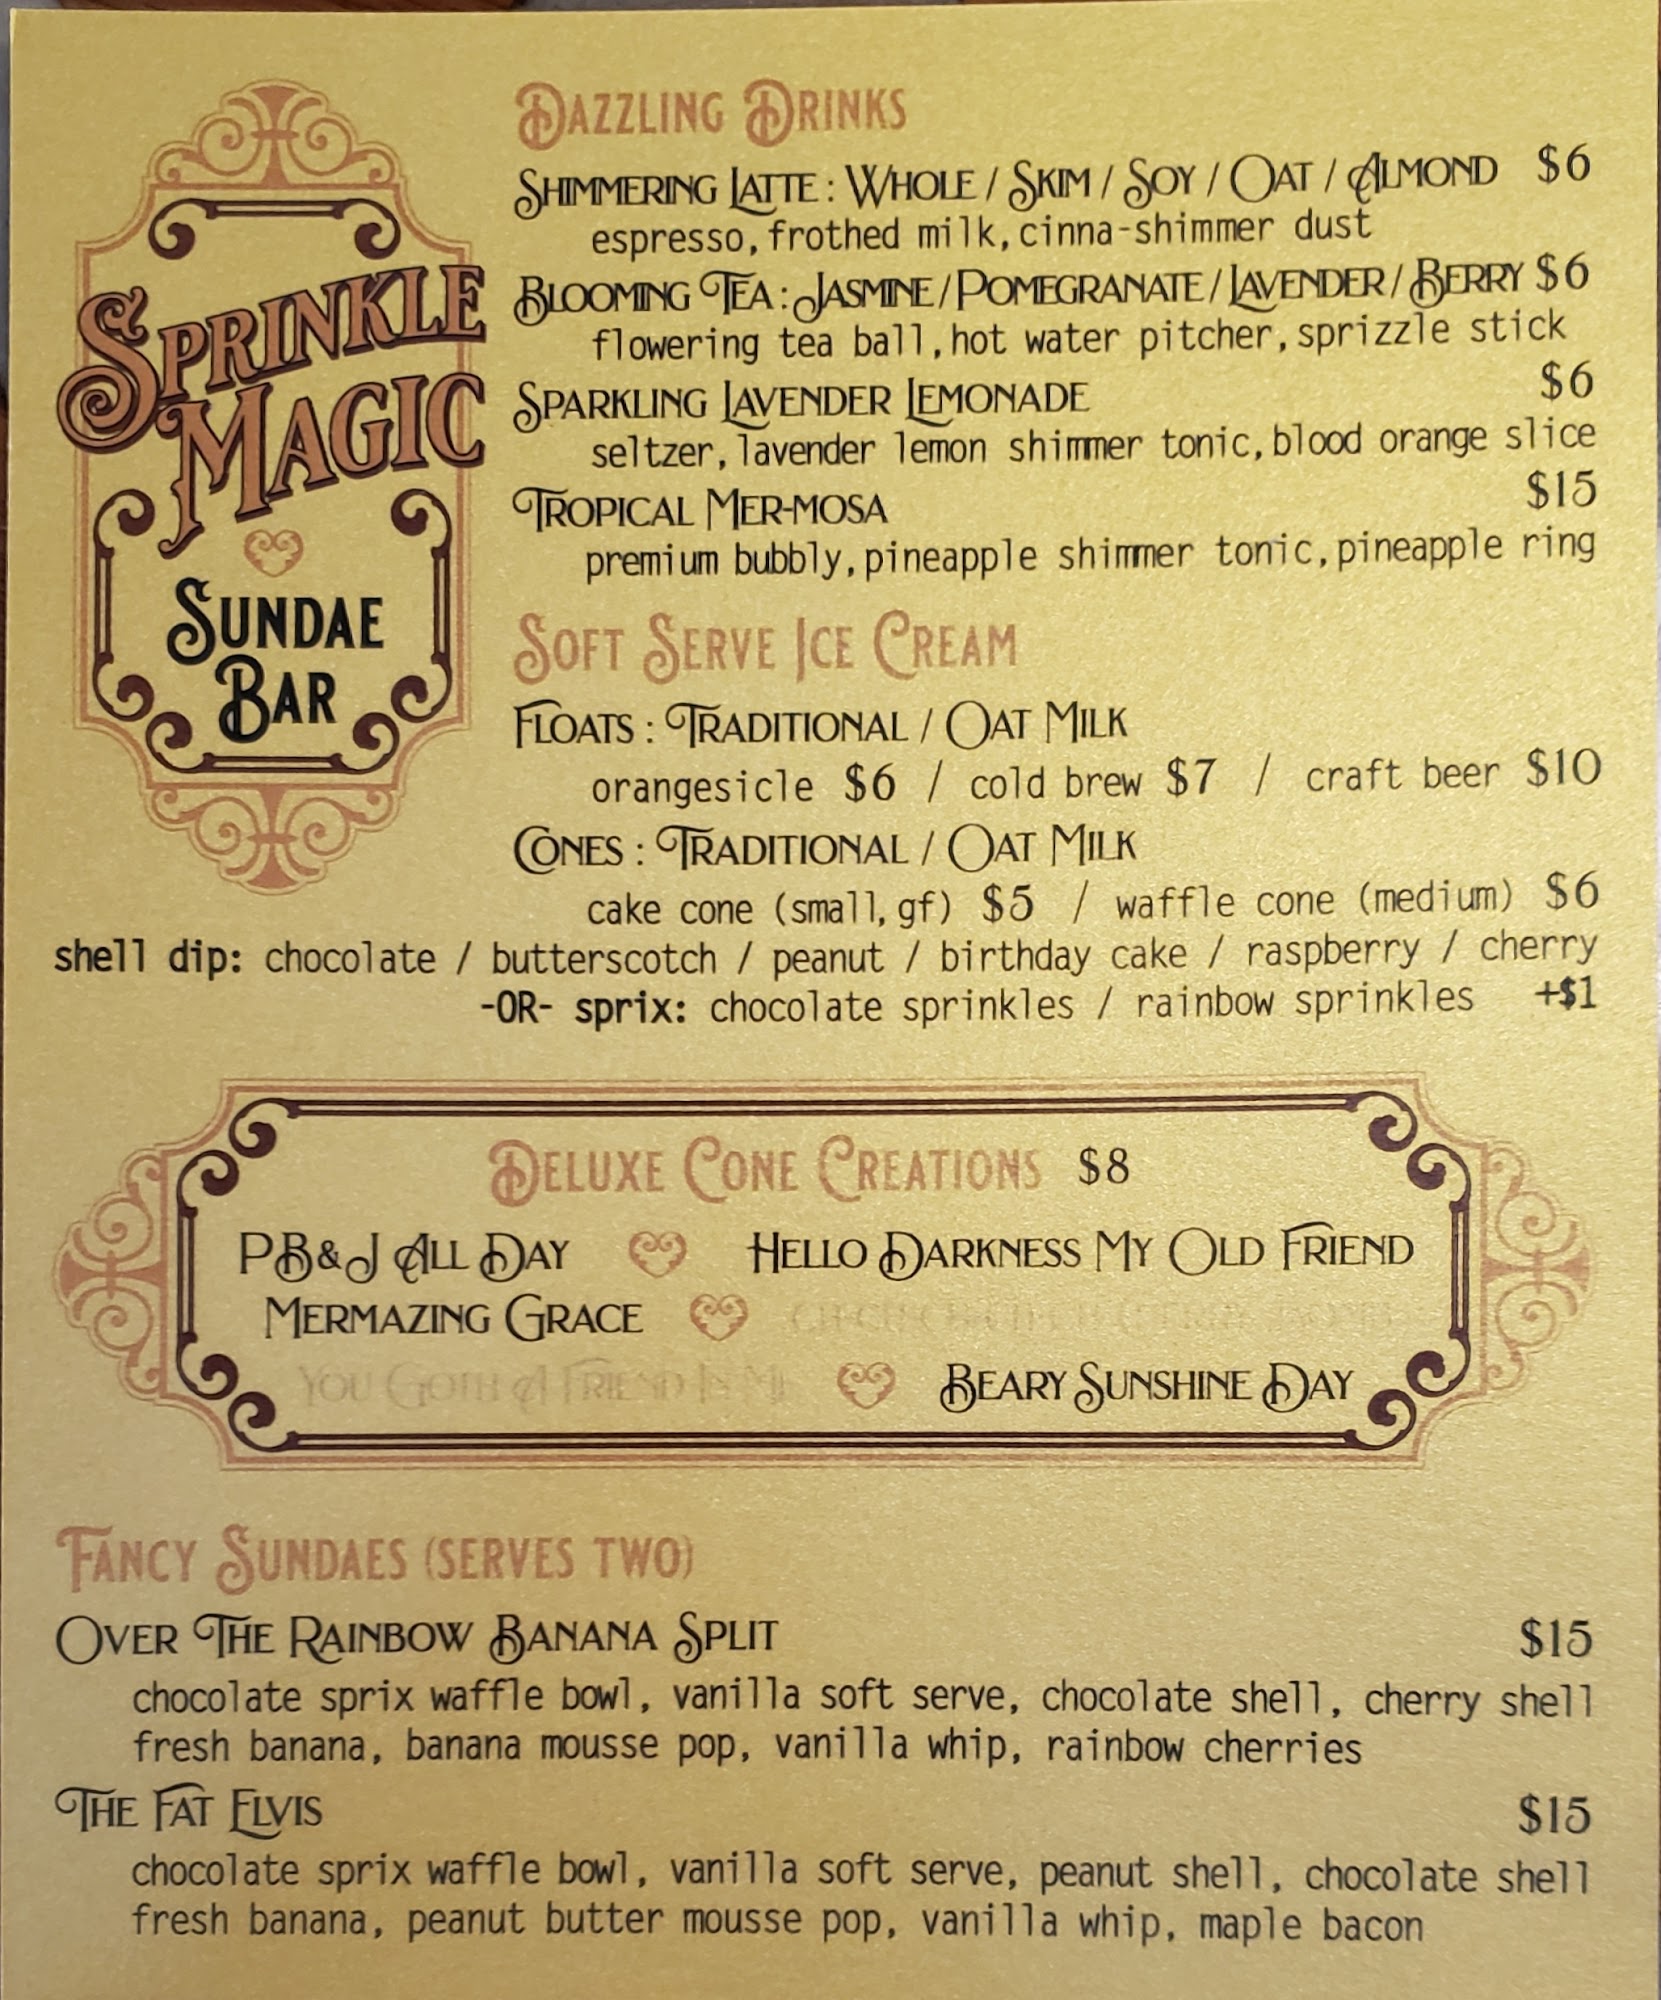 Sprinkle
Magic
Sundae
Bar
Dazzling Drinks
Shimmering Latte : Whole / Skim / Soy / Oat / Almond $6
espresso, frothed milk, cinna-shimmer dust
Blooming Tea : Jasmine / Pomegranate / Lavender / Berry $6
flowering tea ball, hot water pitcher, sprizzle stick
Sparkling Lavender Lemonade $6
seltzer, lavender lemon shimmer tonic, blood orange slice
Tropical Mer-mosa $15
premium bubbly, pineapple shimmer tonic, pineapple ring
Soft Serve Ice Cream
Floats : Traditional / Oat Milk
orangesicle $6 / cold brew $7 / craft beer $10
Cones : Traditional / Oat Milk
cake cone (small, gf) $5 / waffle cone (medium) $6
shell dip: chocolate / butterscotch / peanut / birthday cake / raspberry / cherry
-OR- sprix: chocolate sprinkles / rainbow sprinkles +$1
Deluxe Cone Creations $8
PB&J All Day Hello Darkness My Old Friend
Mermazing Grace
You Goth A Friend In Me Beary Sunshine Day
Fancy Sundaes (serves two)
Over The Rainbow Banana Split $15
chocolate sprix waffle bowl, vanilla soft serve, chocolate shell, cherry shell
fresh banana, banana mousse pop, vanilla whip, rainbow cherries
The Fat Elvis $15
chocolate sprix waffle bowl, vanilla soft serve, peanut shell, chocolate shell
fresh banana, peanut butter mousse pop, vanilla whip, maple bacon